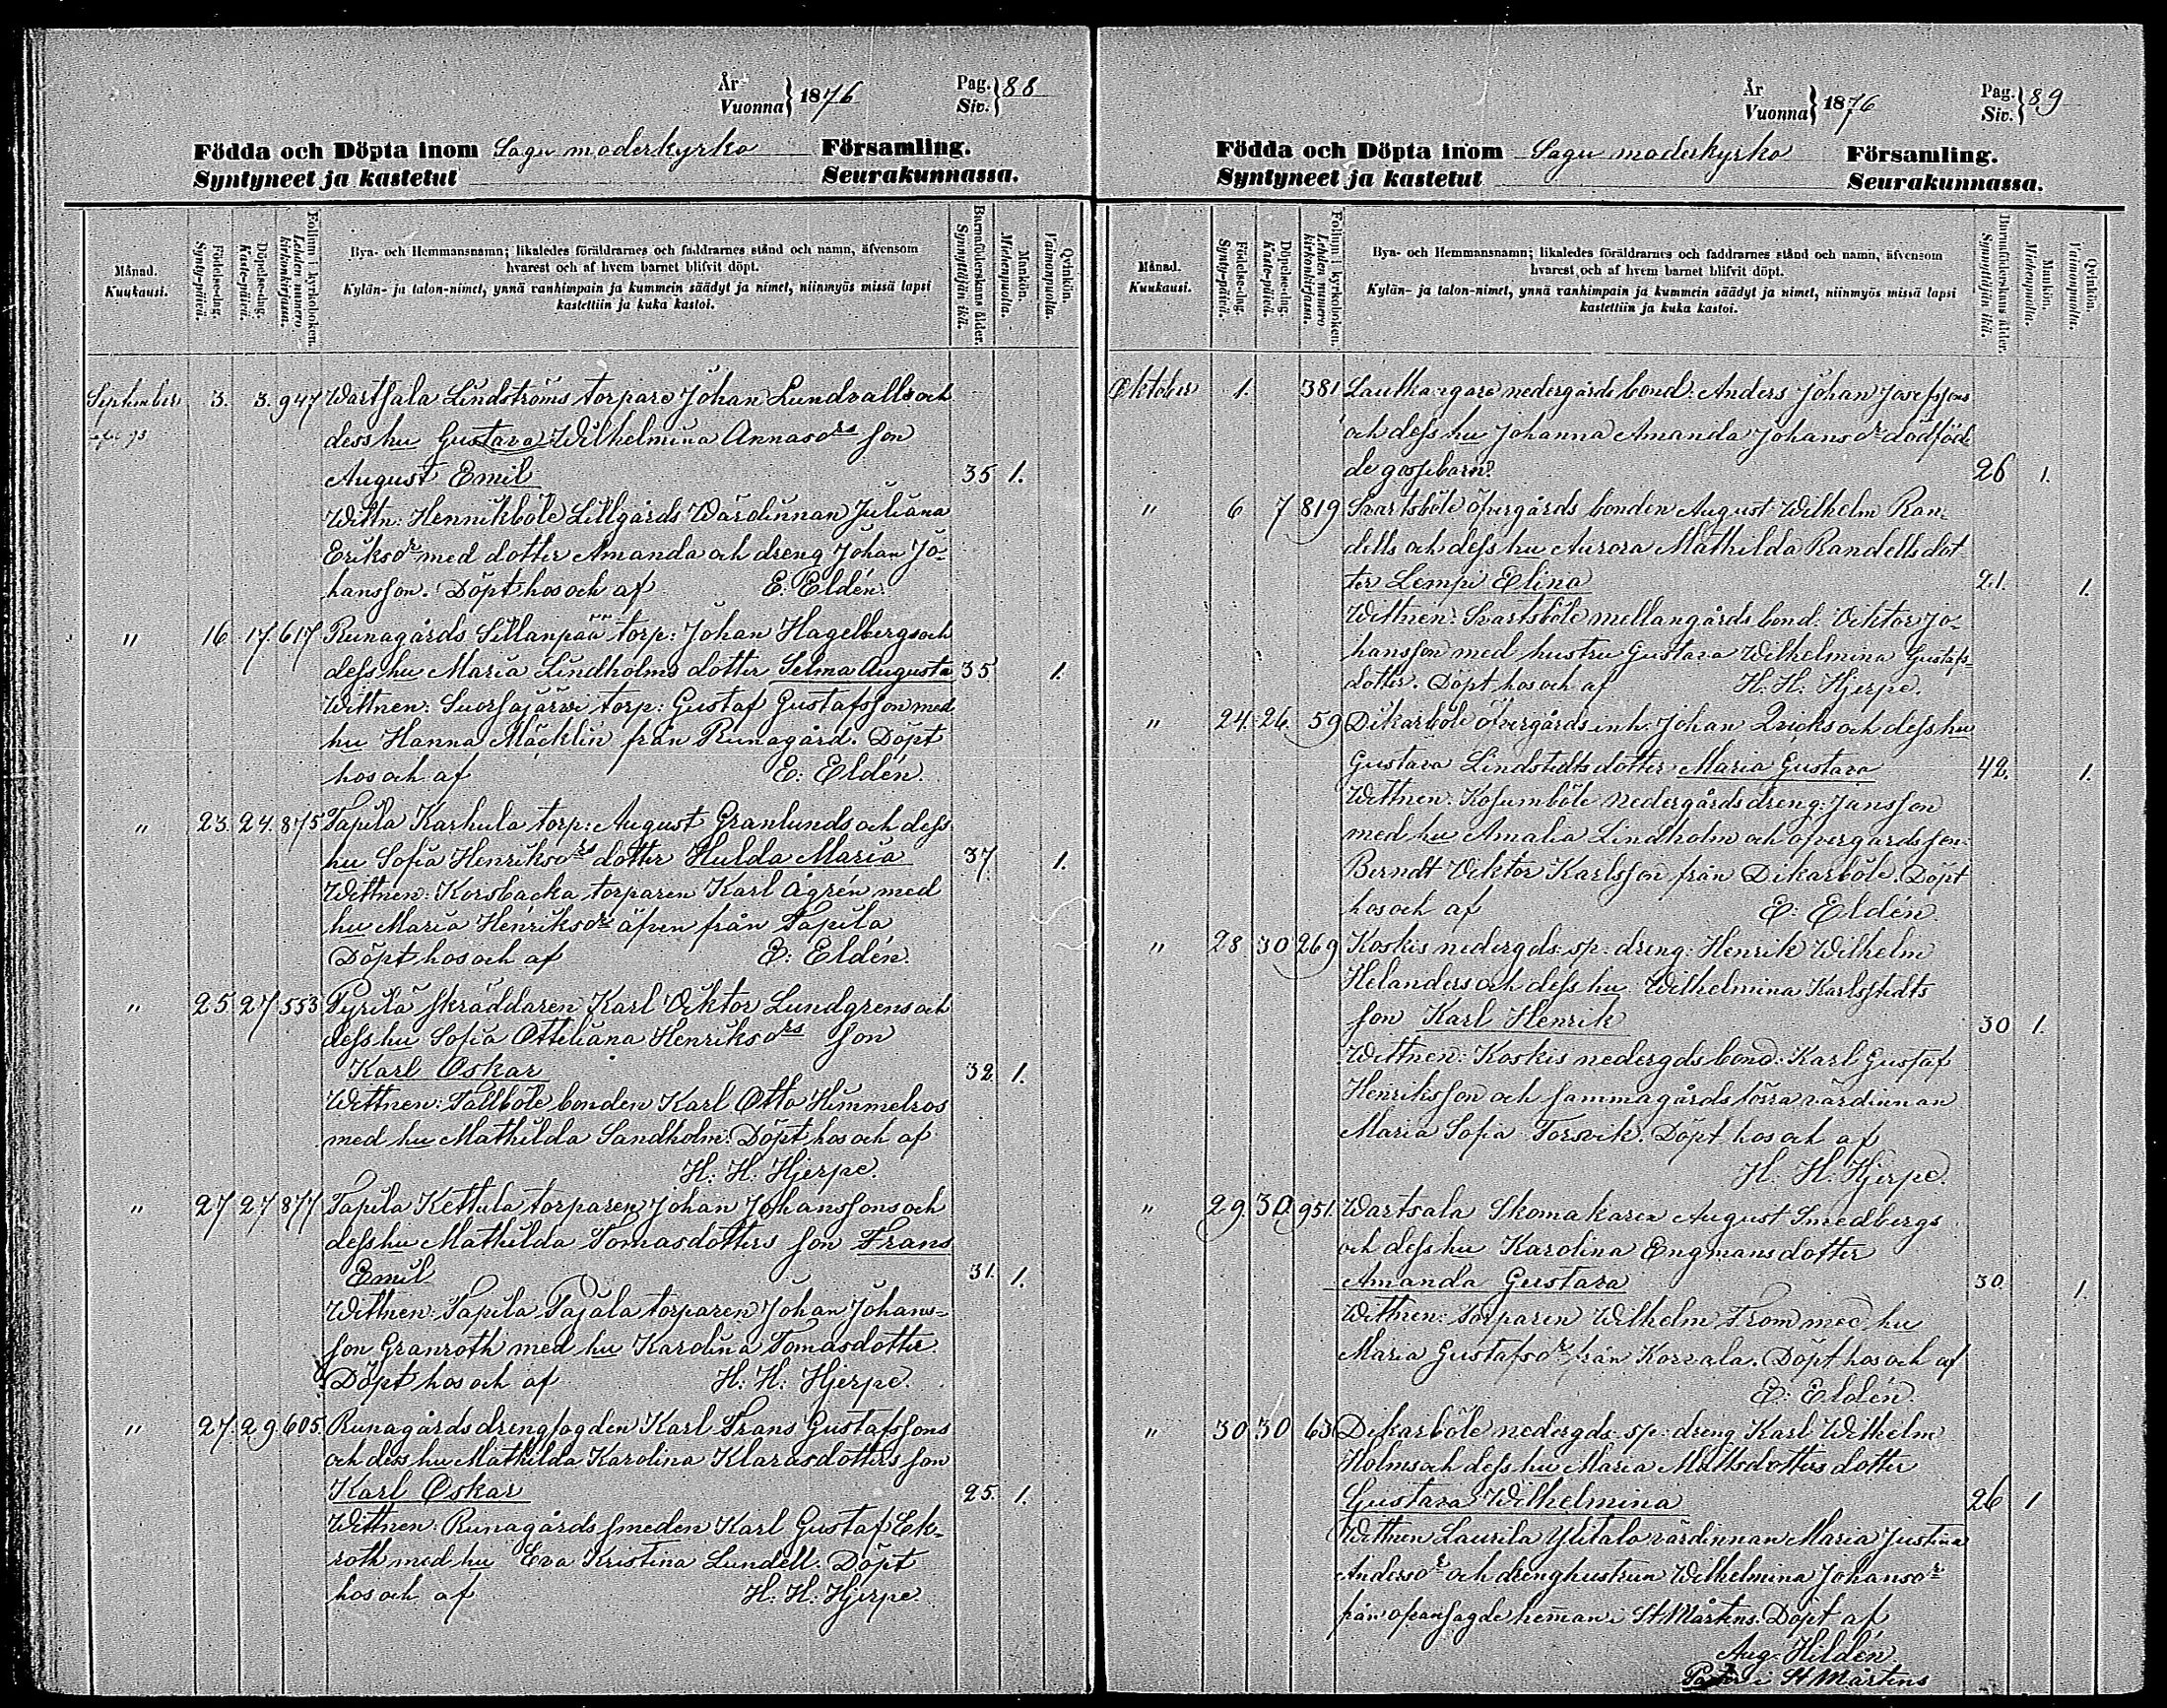 År
Vuonna } 1876 Pag.
Siv. } 88
Födda och Döpta inom Sagu moderkyrko Församling.
Syntyneet ja kastetut Seurakunnassa.
Månad.
Kuukausi.
Födelse-dag.
Synty-päivä.
Döpelse-dag.
Kaste-päivä.
Folium i kyrkoboken.
Lehden numero kirkonkirjassa.
Bya- och Hemmansnamn; likaledes föräldrarnes och faddrarnes stånd och namn, äfvensom
hvarest och af hvem barnet blifvit döpt.
Kylän- ja talon-nimet, ynnä vanhimpain ja kummein säädyt ja nimet, niinmyös missä lapsi
kastettiin ja kuka kastoi.
Barnaföderskans ålder.
Synnyttäjän ikä.
Mankön.
Miehenpuolia.
Qvinkön.
Vaimonpuolia.
September 3. 3. 947 Wartsala Lindströms torpare Johan Lundvalls och
dess hu Gustava Wilhelmina Annasors son
August Emil 35 1.
Wittn: Hennikböle Lillgårds Wärdinnan Juliana
Eriksor med dotter Amanda och dreng Johan Jo-
hansson. Döpt hos och af E: Eldén.
" 16. 17. 617 Runagårds Sillanpää torp: Johan Hagelbergs och
dess hu Maria Lindholms dotter Selma Augusta 35 1.
Wittnen: Suorsajärvi torp: Gustaf Gustafsson med
hu Hanna Mäcklin från Runagård. Döpt
hos och af E: Eldén.
" 23. 24. 875 Tapila Karhula torp: August Granlunds och dess
hu Sofia Henriksors dotter Hulda Maria 37. 1.
Wittnen: Korsbacka torparen Karl Ågrén med
hu Maria Henriksor äfven från Tapila
Döpt hos och af E: Eldén.
" 25. 27 553 Pyrilä skräddaren Karl Viktor Lundgrens och
dess hu Sofia Otteliana Henriksors son
Karl Oskar 32. 1.
Wittnen: Tallböle bonden Karl Otto Himmelros
med hu Mathilda Sandholm. Döpt hos och af
H: H: Hjerpe.
" 27 27 877 Tapila Kettula torparen Johan Johanssons och
dess hu Mathilda Tomasdotters son Frans
Emil 31. 1.
Wittnen: Tapila Pajala torparen Johan Johans-
son Granroth med hu Karolina Tomasdotter
Döpt hos och af H: H: Hjerpe.
" 27. 29. 605. Runagårds drengfogden Karl Frans Gustafssons
och dess hu Mathilda Karolina Klarasdotters son
Karl Oskar 25. 1.
Wittnen: Runagårds smeden Karl Gustaf Ek-
roth med hu Eva Kristina Lundell. Döpt
hos och af H: H: Hjerpe.
År
Vuonna } 1876 Pag.
Siv. } 89
Födda och Döpta inom Sagu moderkyrko Församling.
Syntyneet ja kastetut Seurakunnassa.
Månad.
Kuukausi.
Födelse-dag.
Synty-päivä.
Döpelse-dag.
Kaste-päivä.
Folium i kyrkoboken.
Lehden numero kirkonkirjassa.
Bya- och Hemmansnamn; likaledes föräldrarnes och faddrarnes stånd och namn, äfvensom
hvarest och af hvem barnet blifvit döpt.
Kylän- ja talon-nimet, ynnä vanhimpain ja kummein säädyt ja nimet, niinmyös missä lapsi
kastettiin ja kuka kastoi.
Barnaföderskans ålder.
Synnyttäjän ikä.
Mankön.
Miehenpuolia.
Qvinkön.
Vaimonpuolia.
Oktober 1. 381 Lautkangare nedergårds bond: Anders Johan Josefssons
och dess hu Johanna Amanda Johansor dödföd
de gossebarn. 26 1.
" 6 7 819 Svartsböle öfvergårds bonden August Wilhelm Ran-
dells och dess hu Aurora Mathilda Randells dot
ter Lempi Elina 21. 1.
Wittnen: Svartsböle mellangårds bond: Viktor Jo-
hansson med hustru Gustava Wilhelmina Gustafs-
dotter. Döpt hos och af H: H: Hjerpe.
" 24. 26. 59 Dikarböle öfvergårds inh: Johan Qvicks och dess hu
Gustava Lindstedts dotter Maria Gustava 42. 1.
Wittnen: Kosumböle nedergårds dreng: Jansson
med hu Amalia Lindholm och öfvergårds son:
Berndt Viktor Karlsson från Dikarböle. Döpt
hos och af E: Eldén
" 28. 30 269 Koskis nedergds. sp: dreng: Henrik Wilhelm
Helanders och dess hu Wilhelmina Karlstedts
son Karl Henrik 30 1.
Wittnen: Koskis nedergds bond: Karl Gustaf
Henriksson och samma gårds förra värdinnan
Maria Sofia Torsvik. Döpt hos och af
H: H: Hjerpe.
" 29. 30. 951. Wartsala Skomakaren August Smedbergs
och dess hu Karolina Engmans dotter
Amanda Gustava 30. 1.
Wittnen: torparen Wilhelm From med hu
Maria Gustafsor från Korvala. Döpt hos och af
E: Eldén.
" 30 30 63 Dikarböle nedergds. sp: dreng Karl Wilhelm
Holms och dess hu Maria Mattsdotters dotter
Gustava Wilhelmina 26 1
Wittnen Laurila Ylitalo värdinnan Maria Justina
Andersor och drenghustrun Wilhelmina Johansor
från ofvansagde hemman i St Mårtens. Döpt af
Aug. Hildén
i St Mårtens